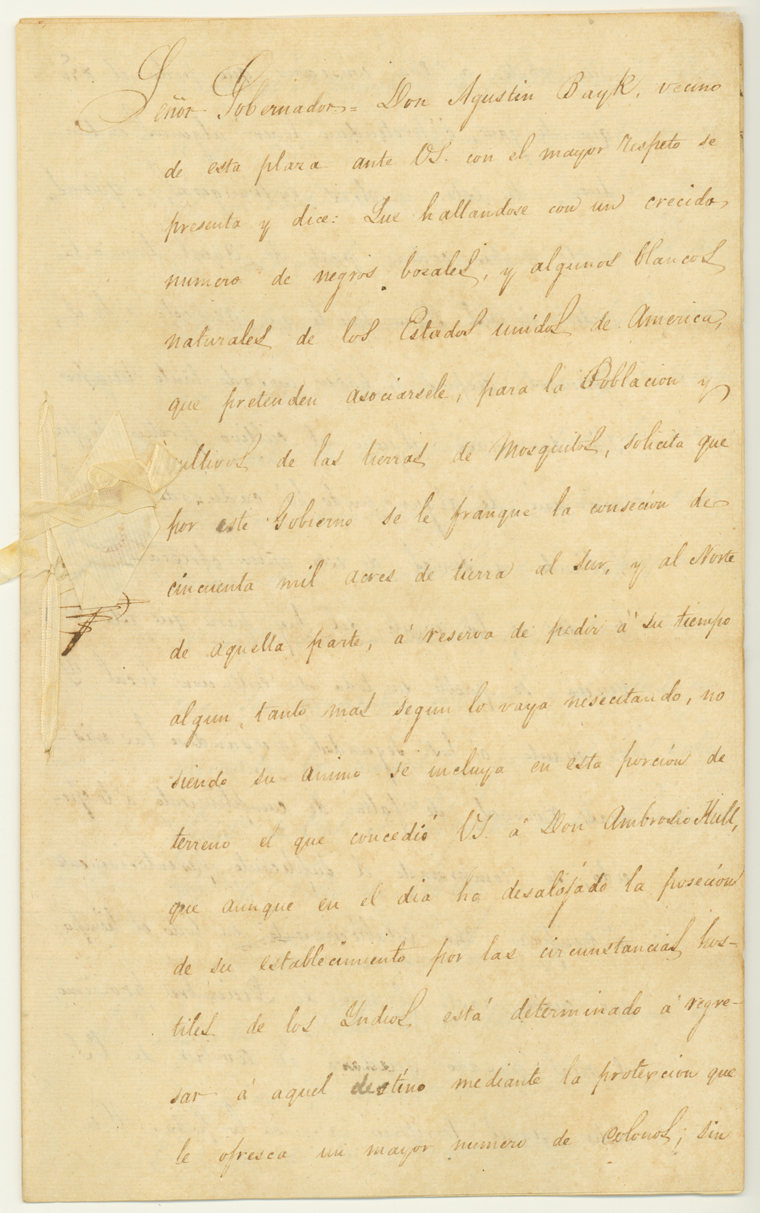 Señor Gobernador = Don Agustin Bayk, vecino
de esta plaza ante VS. con el mayor respeto se
presenta y dice: Que hallandose con un crecido
numero de negros bosales, y algunos blancos
naturales de los Estados unidos de America,
que pretenden asociarsele, para la Poblacion y
cultivos de las tierras de Mosquitos, solicita que
por este Gobierno se le franque la consecion de
cincuenta mil acres de tierra al Sur, y al Norte
de aquella parte, á reserva de pedir á su tiempo
algun tanto mas segun lo vaya nesecitando, no
siendo su animo se incluya en esta porción de
terreno el que concedió VS. á Don Ambrosio Hull,
que aunque en el dia ha desalojado la posecion
de su establecimiento por las circunstancias hos-
tiles de los Yndios está determinado á regre-
sar á aquel destino mediante la proteccion que
le ofresca un mayor numero de Colonos; sin